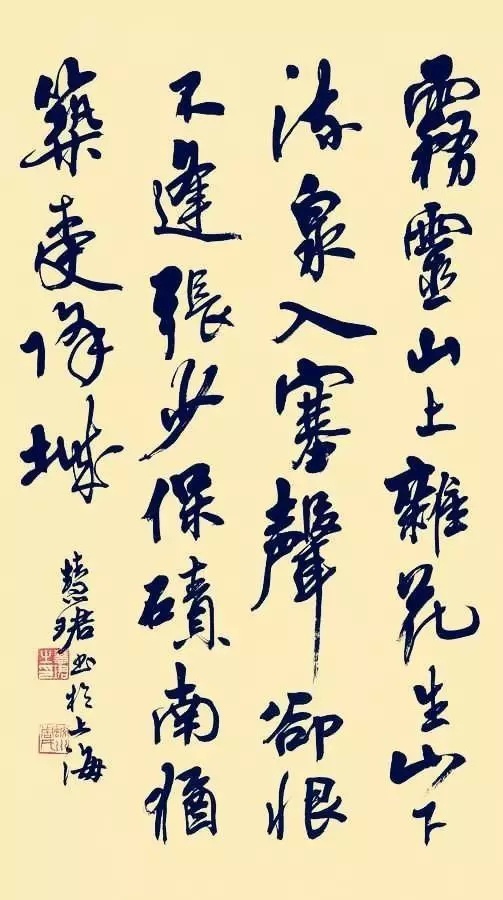 霧靈山上雜花生山下
流泉入塞聲卻恨
不逢張少保磧南猶
築受降城
慧珺書於上海